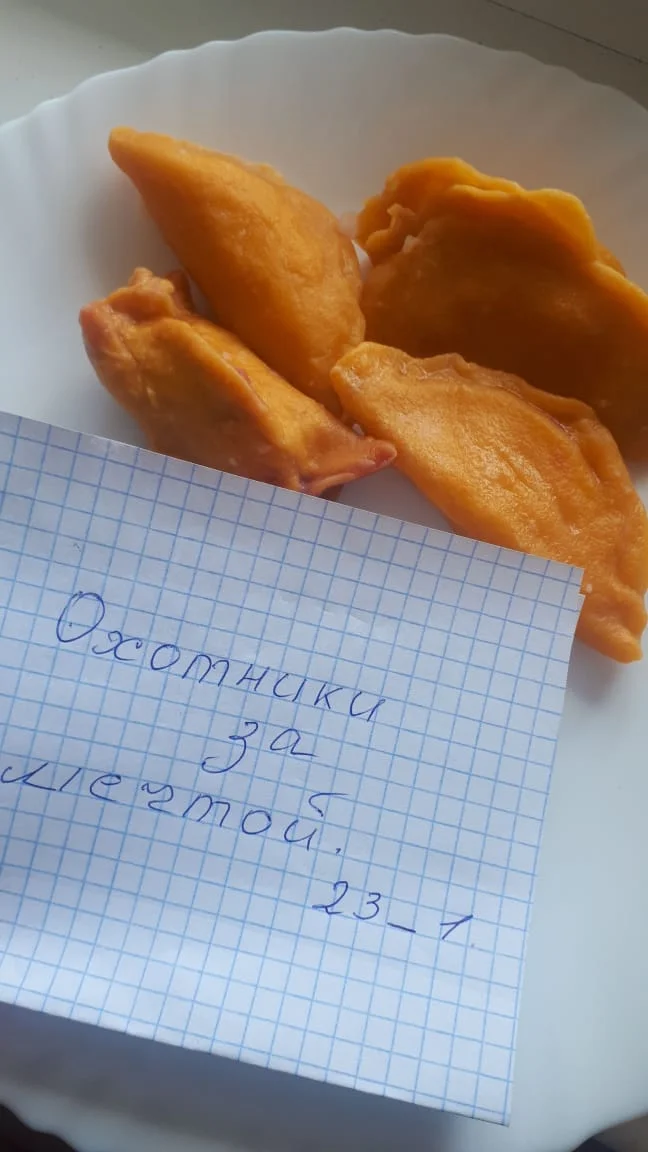 Охотники
за
мечтой.
23_1.